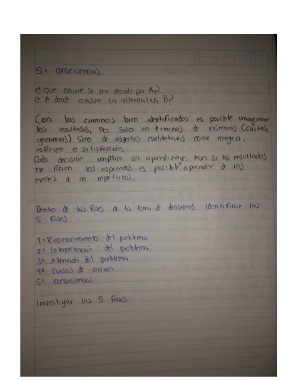 5= consecuencias.
¿Que ocurre si me decido por A?
¿A donde conduce la alternativa B?
Con los caminos bien identificados es posible imaginar
los resultados, no solo en terminos de números (costos,
ganancias) sino de aspectos cualitativos como imagen,
esfuerzo o satisfacción.
Cada decisión implica un aprendizaje. Aun si los resultados
no fueron los esperados es posible aprender de los
errores y no repetirlos.
Dentro de las fases de la toma de decisiones identificar las
5 fases
1= Reconocimiento del problema
2= Interpretación del problema
3= Atención del problema
4= Cursos de acción
5= consecuencias
Investigar las 5 fases